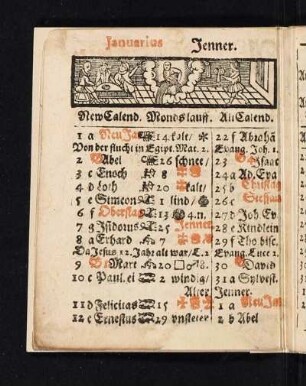 Januarius Jenner.
New Calend. Mondslauff. Alt Calend.
1 a New Ja 14 kalt/ 22 f Abrahā
Von der flucht in Egipt. Mat. 2. Evang. Joh. 1.
2 Abel 26 schnee/ 23 Isaac
3 c Enoch 8 24 a Ad. Eva
4 d Loth 20 kalt/ 25 b Christag
5 e Simeon 1 lind/ 26 c Stephan
6 f Oberstag 13 4. n. 27 d Joh Ev.
7 g Isidorus 25 Jenner 28 e Kindlein
8 a Erhard 7 29 f Tho bisc.
Da Jesus 12. Jahr alt war/ C. Evang. Luce 2.
9 Mart 20 30 David
10 c Paul. ei 2 windig/ 31 a Sylvest.
Alter Jenner.
11 d Felicitas 15 1 a New Ja
12 e Ernestus 29 vnsteter 2 b Abel